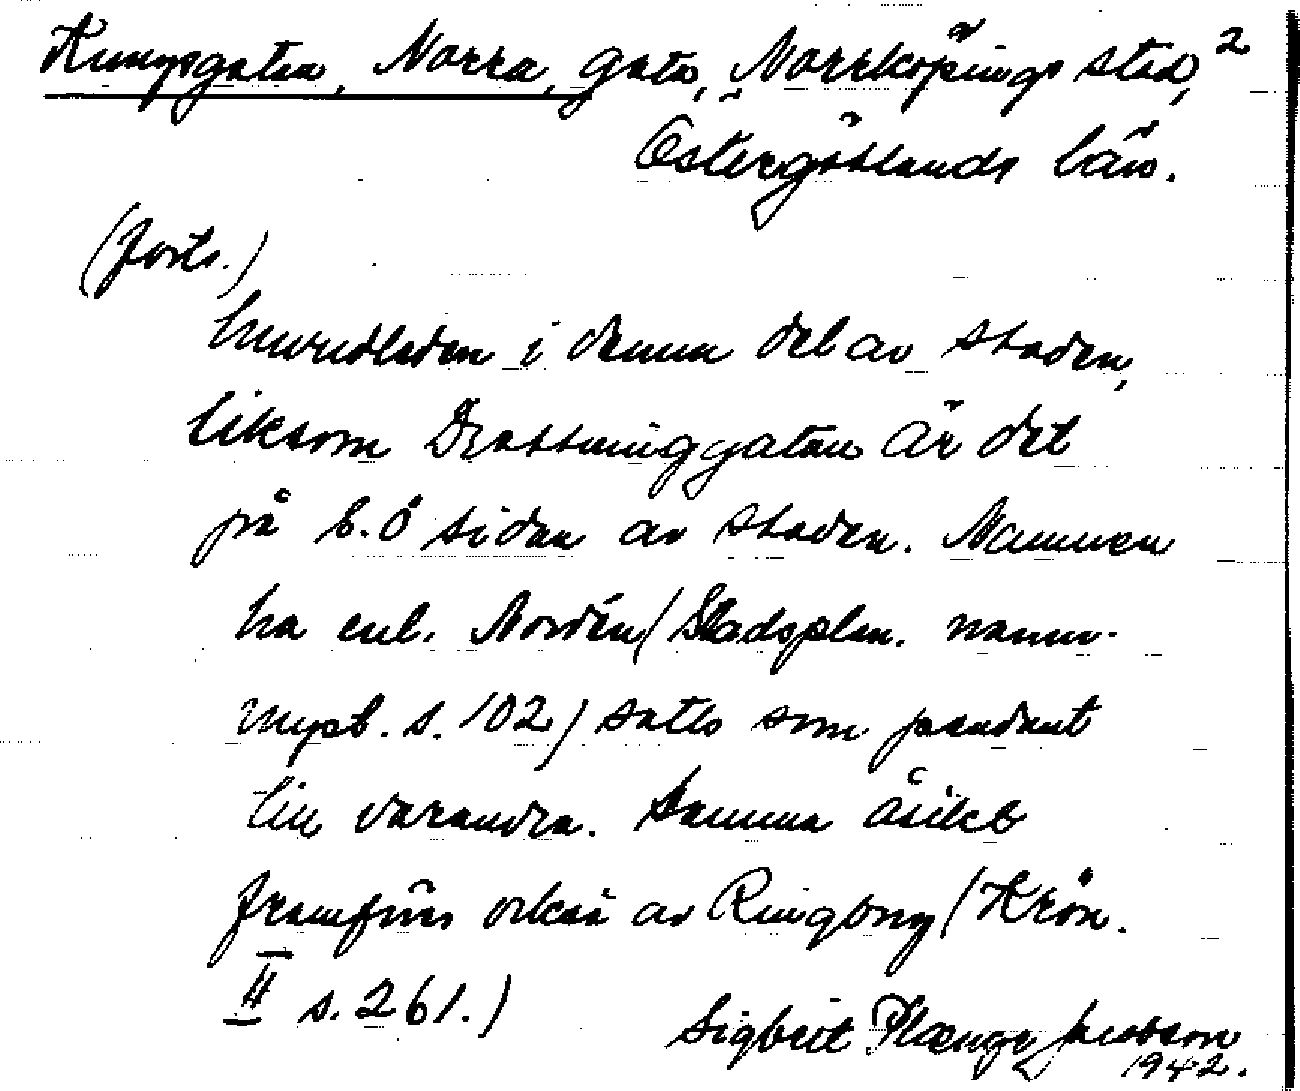 Kungsgatan, Norra, gata, Norrköpings stad, 2
Östergötlands län.
(forts.)
huvudleden i denna del av staden,
liksom Drottninggatan är det
på s.ö sidan av staden. Namnen
ha enl. Nordén (Stadsplan. namn-
myst. s. 102) satts som pendant
till varandra. Samma åsikt
framföres också av Ringborg (Krön.
II s. 261.)
Sigbrit Plænge Jacobson
1942.